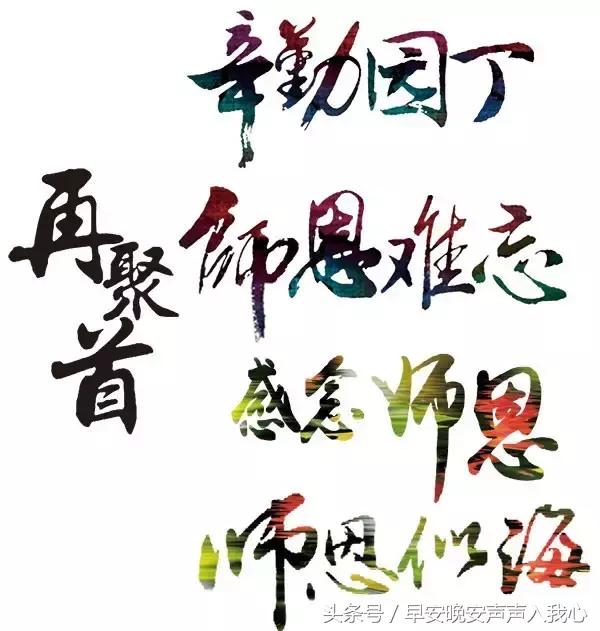 辛勤园丁
再聚首
師恩难忘
感念师恩
师恩似海
头条号 / 早安晚安声声入我心